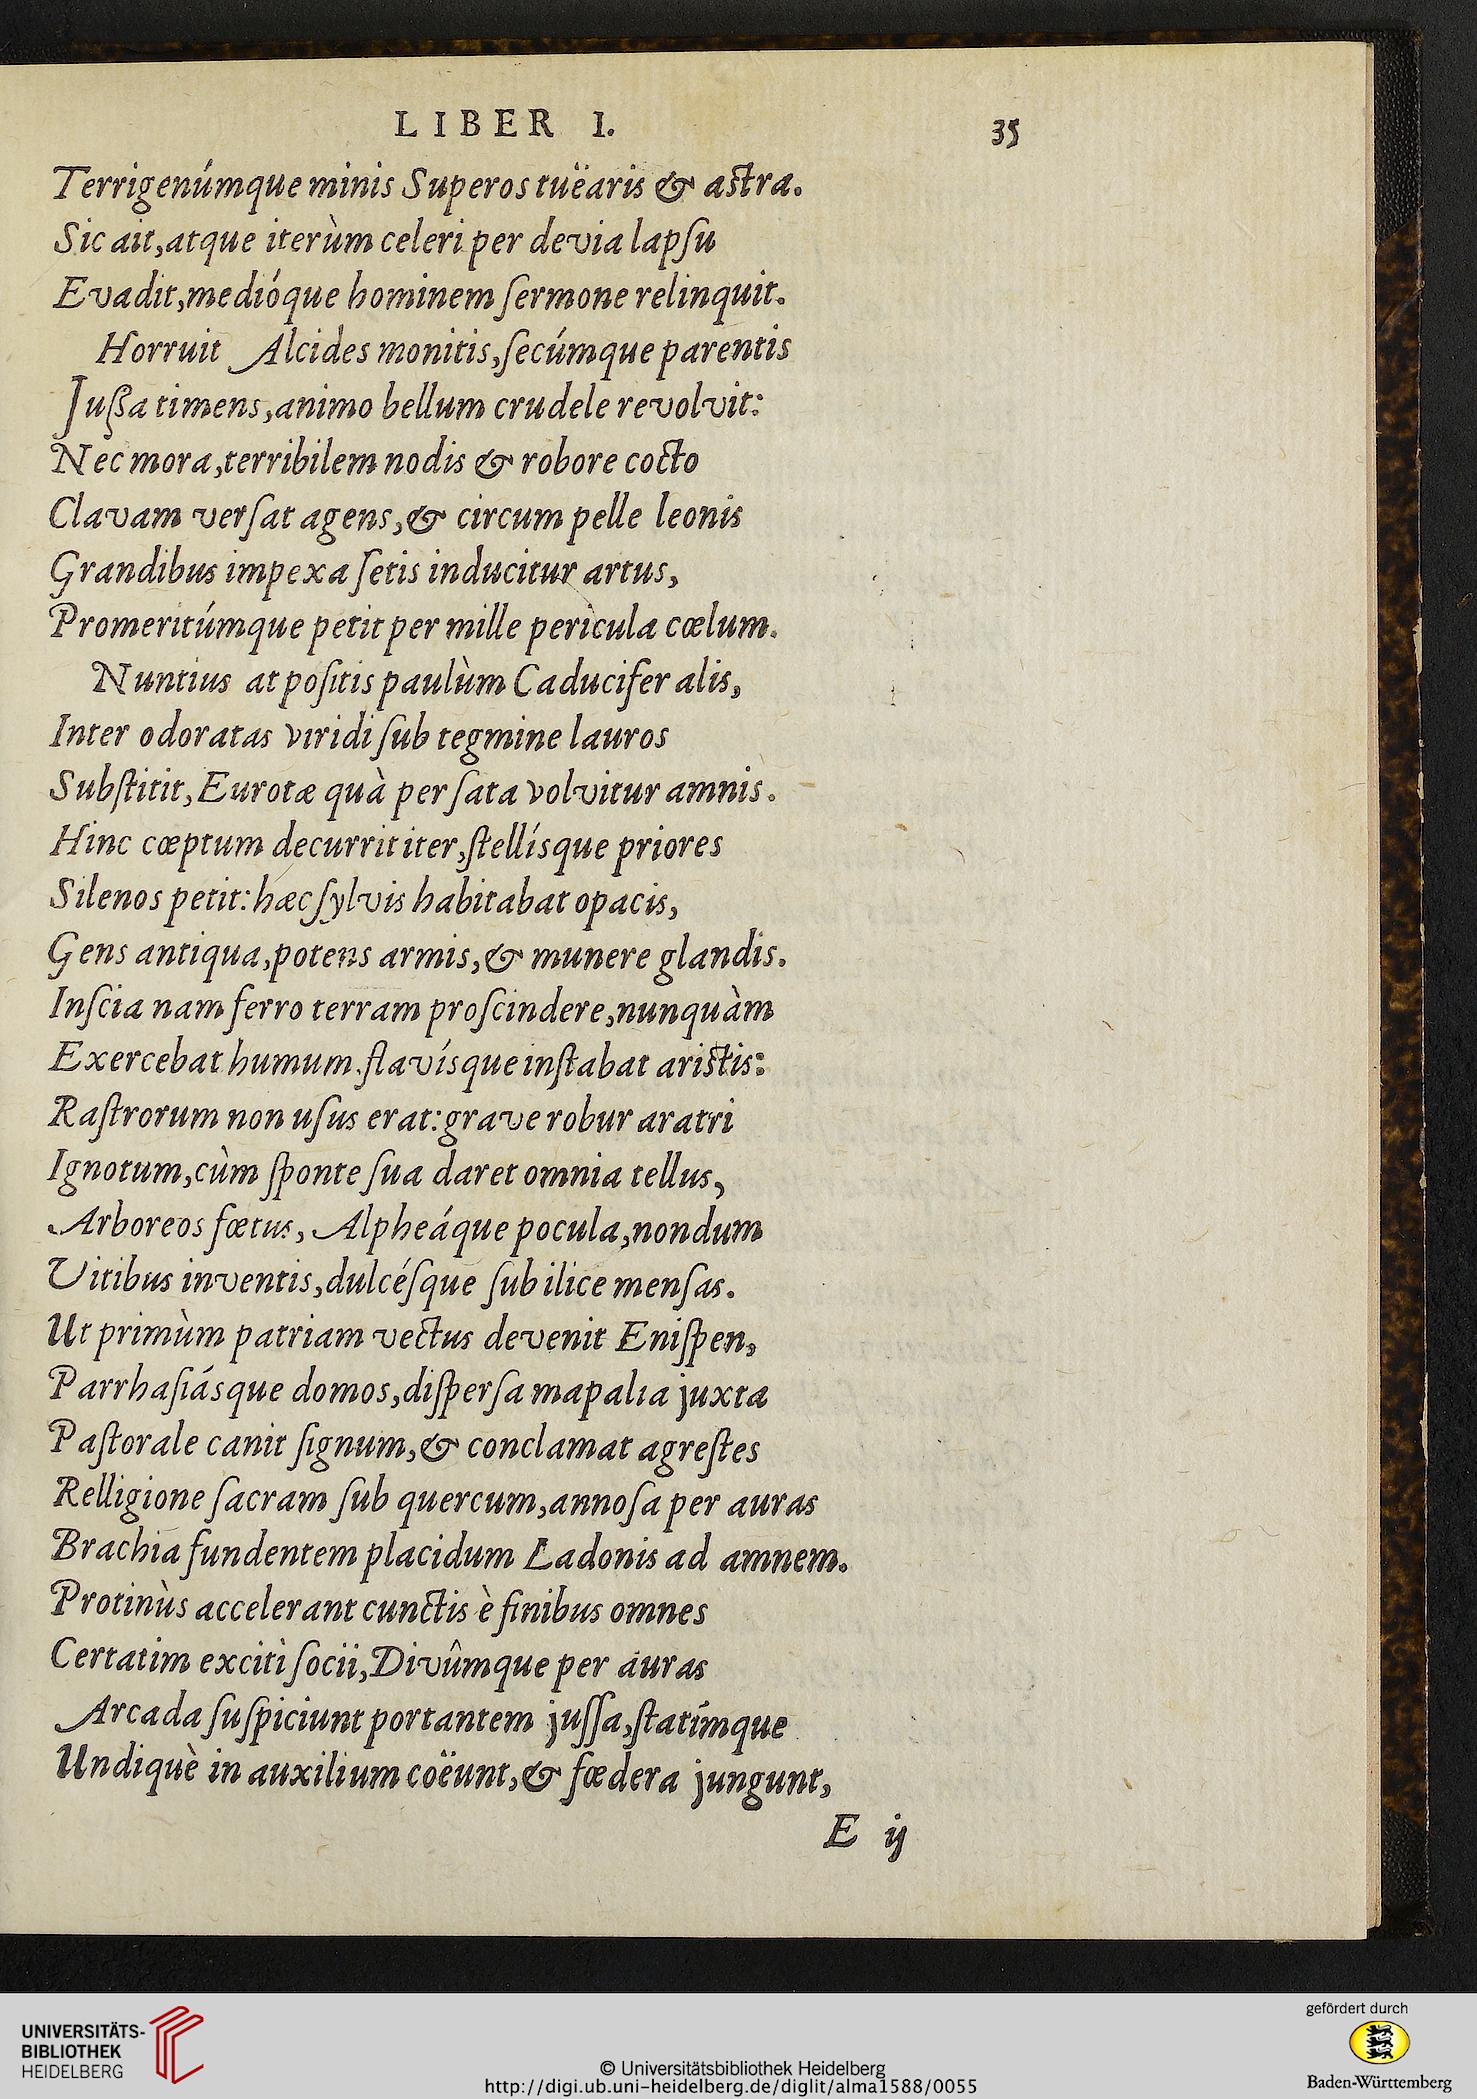 LIBER I. 35
Terrigenúmque minis Superos tuëaris & astra.
Sic ait, atque iterùm celeri per devia lapſu
Evadit, medióque hominem ſermone relinquit.
Horruit Alcides monitis, ſecúmque parentis
Juſſa timens, animo bellum crudele revolvit:
Nec mora, terribilem nodis & robore cocto
Clavam verſat agens, & circum pelle leonis
Grandibus impexa ſetis inducitur artus,
Promeritúmque petit per mille pericula cœlum.
Nuntius at poſitis paulùm Caducifer alis,
Inter odoratas viridi ſub tegmine lauros
Subſtitit, Eurotæ quà per ſata volvitur amnis.
Hinc cœptum decurrit iter, ſtellísque priores
Silenos petit: hæc ſylvis habitabat opacis,
Gens antiqua, potens armis, & munere glandis.
Inſcia nam ferro terram proſcindere, nunquàm
Exercebat humum. flavísque inſtabat aristis:
Raſtrorum non uſus erat: grave robur aratri
Ignotum, cùm ſponte ſua daret omnia tellus,
Arboreos fœtus, Alpheáque pocula, nondum
Vitibus inventis, dulcéſque ſub ilice menſas.
Ut primùm patriam vectus devenit Eniſpen,
Parrhaſiásque domos, diſperſa mapalia juxta
Paſtorale canit ſignum, & conclamat agreſtes
Relligione ſacram ſub quercum, annoſa per auras
Brachia fundentem placidum Ladonis ad amnem.
Protinùs accelerant cunctis è finibus omnes
Certatim exciti ſocii, Divûmque per auras
Arcada ſuſpiciunt portantem juſſa, ſtatímque
Undiquè in auxilium coëunt, & fœdera jungunt,
E ij
UNIVERSITÄTS-
BIBLIOTHEK
HEIDELBERG
© Universitätsbibliothek Heidelberg
http://digi.ub.uni-heidelberg.de/diglit/alma1588/0055
gefördert durch
Baden-Württemberg